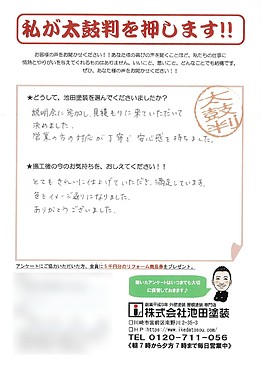 私が太鼓判を押します!!
お客様の声をお聞かせください!!あなた様の喜びの声を聞くことほど、私たちの仕事に
情熱とやりがいを与えてくれるものはありません。いいこと、悪いこと、どんなことでも結構です。
ぜひ、あなた様の声をお聞かせください。
★どうして、池田塗装を選んでくださいましたか?
太鼓判
説明会に参加し、見積もりに来ていただいて
決めました。
営業の方の対応が丁寧で安心感を持ちました。
★施工後の今のお気持ちを、おしえてください!!
とてもきれいに仕上げていただき、満足しています。
色もイメージ通りになりました。
ありがとうございました。
アンケートにご協力いただいた方、全員に5千円分のリフォーム商品券をプレゼント。
頂いたアンケートはいつまでも大切
に保管しております♪
創業平成3年 外壁塗装 屋根塗装 専門店
株式会社池田塗装
川崎市宮前区南野川2-35-3
HP https://www.ikedatosou.com/
TEL 0120-711-056
(朝7時から夕方7時まで毎日営業中)